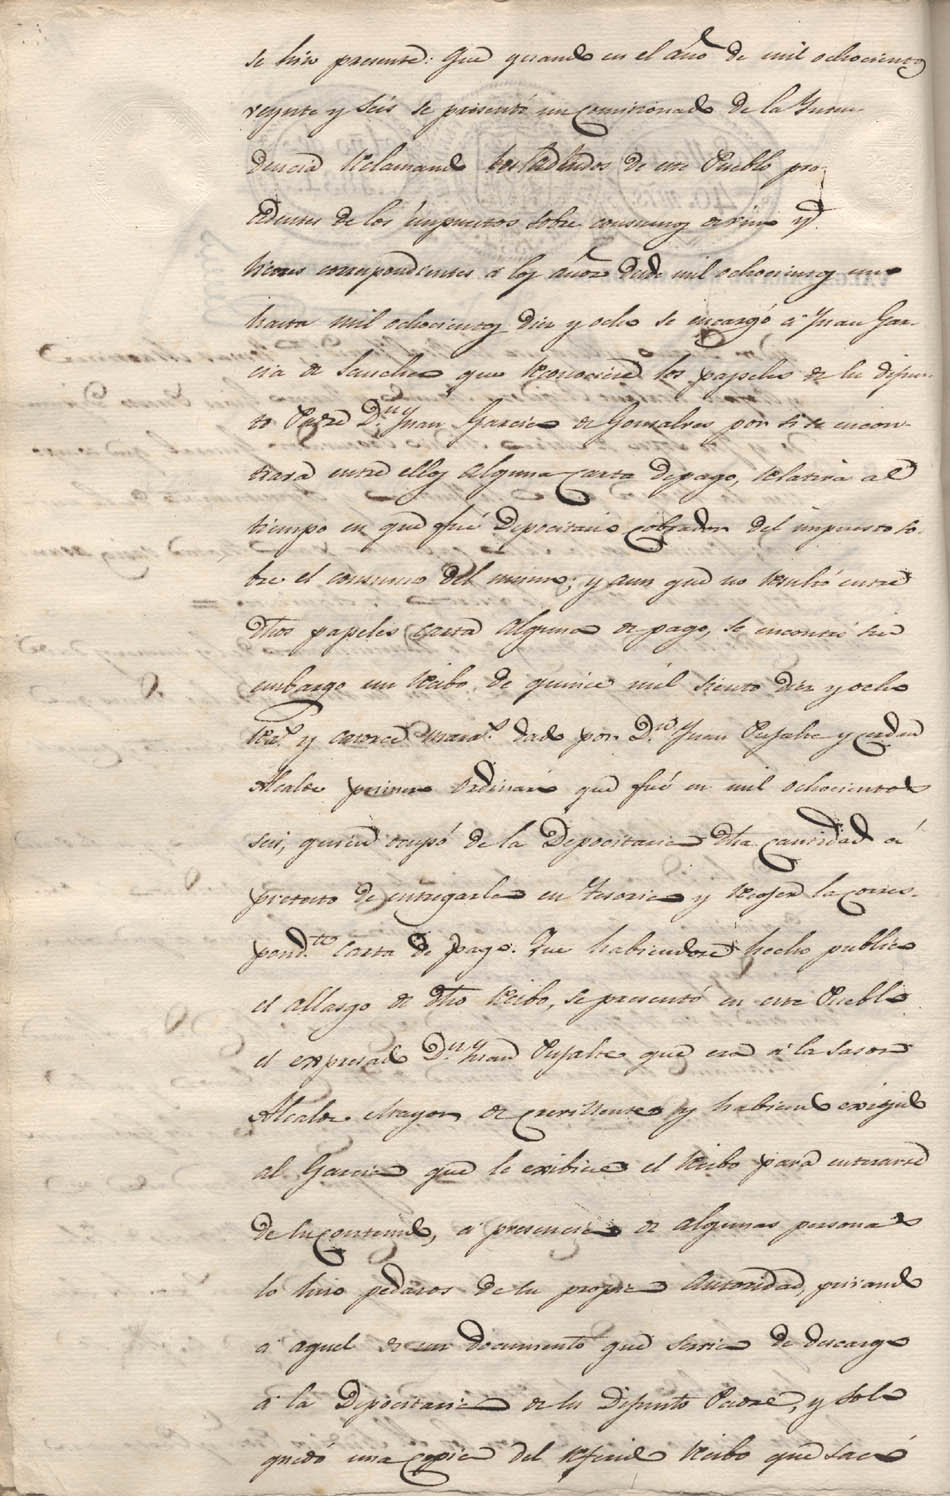 se hizo presente: Que quando en el año de mil ochocientos
veynte y seis se presentó un comisionado de la Inten-
dencia reclamando de este Pueblo pro-
cedentes de los impuestos sobre consumo de vino y
correspondientes á los años desde mil ochocientos uno
hasta mil ochocientos diez y ocho se encargó á Juan Gar-
cia de Sanchez que reconociese los papeles de su difun-
to Padre D.n Juan Garcia de Gonsalves por si se encon-
trara entre ellos alguna carta de pago, relativa al
tiempo en que fué Depocitario cobrador del impuesto so-
bre el consumo del mismo; y aun que no resultó entre
dhos papeles carta alguna de pago, se encontró sin
embargo un recibo de quince mil siento diez y ocho
rr.s y catorce marav.s dado por D.n Juan
Alcalde primero ordinario que fué en mil ochocientos
seis, quien ocupó de la Depocitaria dha cantidad á
pretexto de entregarla en Tesoreria y recojer la corres-
pond.te Carta de pago. Que habiendose hecho publico
el allasgo de dho recibo, se presentó en este Pueblo
el expresado D.n Juan que era á la sason
Alcalde Mayor de Crevillente y habiendo exigido
al Garcia que le exibiese el recibo para enterarse
de su contenido, á presencia de algunas personas
lo hizo pedasos de su propia autoridad, privando
á aquel de un documento que servia de descargo
á la Depocitaria de su Difunto Padre, y solo
quedó una copia del referido recibo que sacó